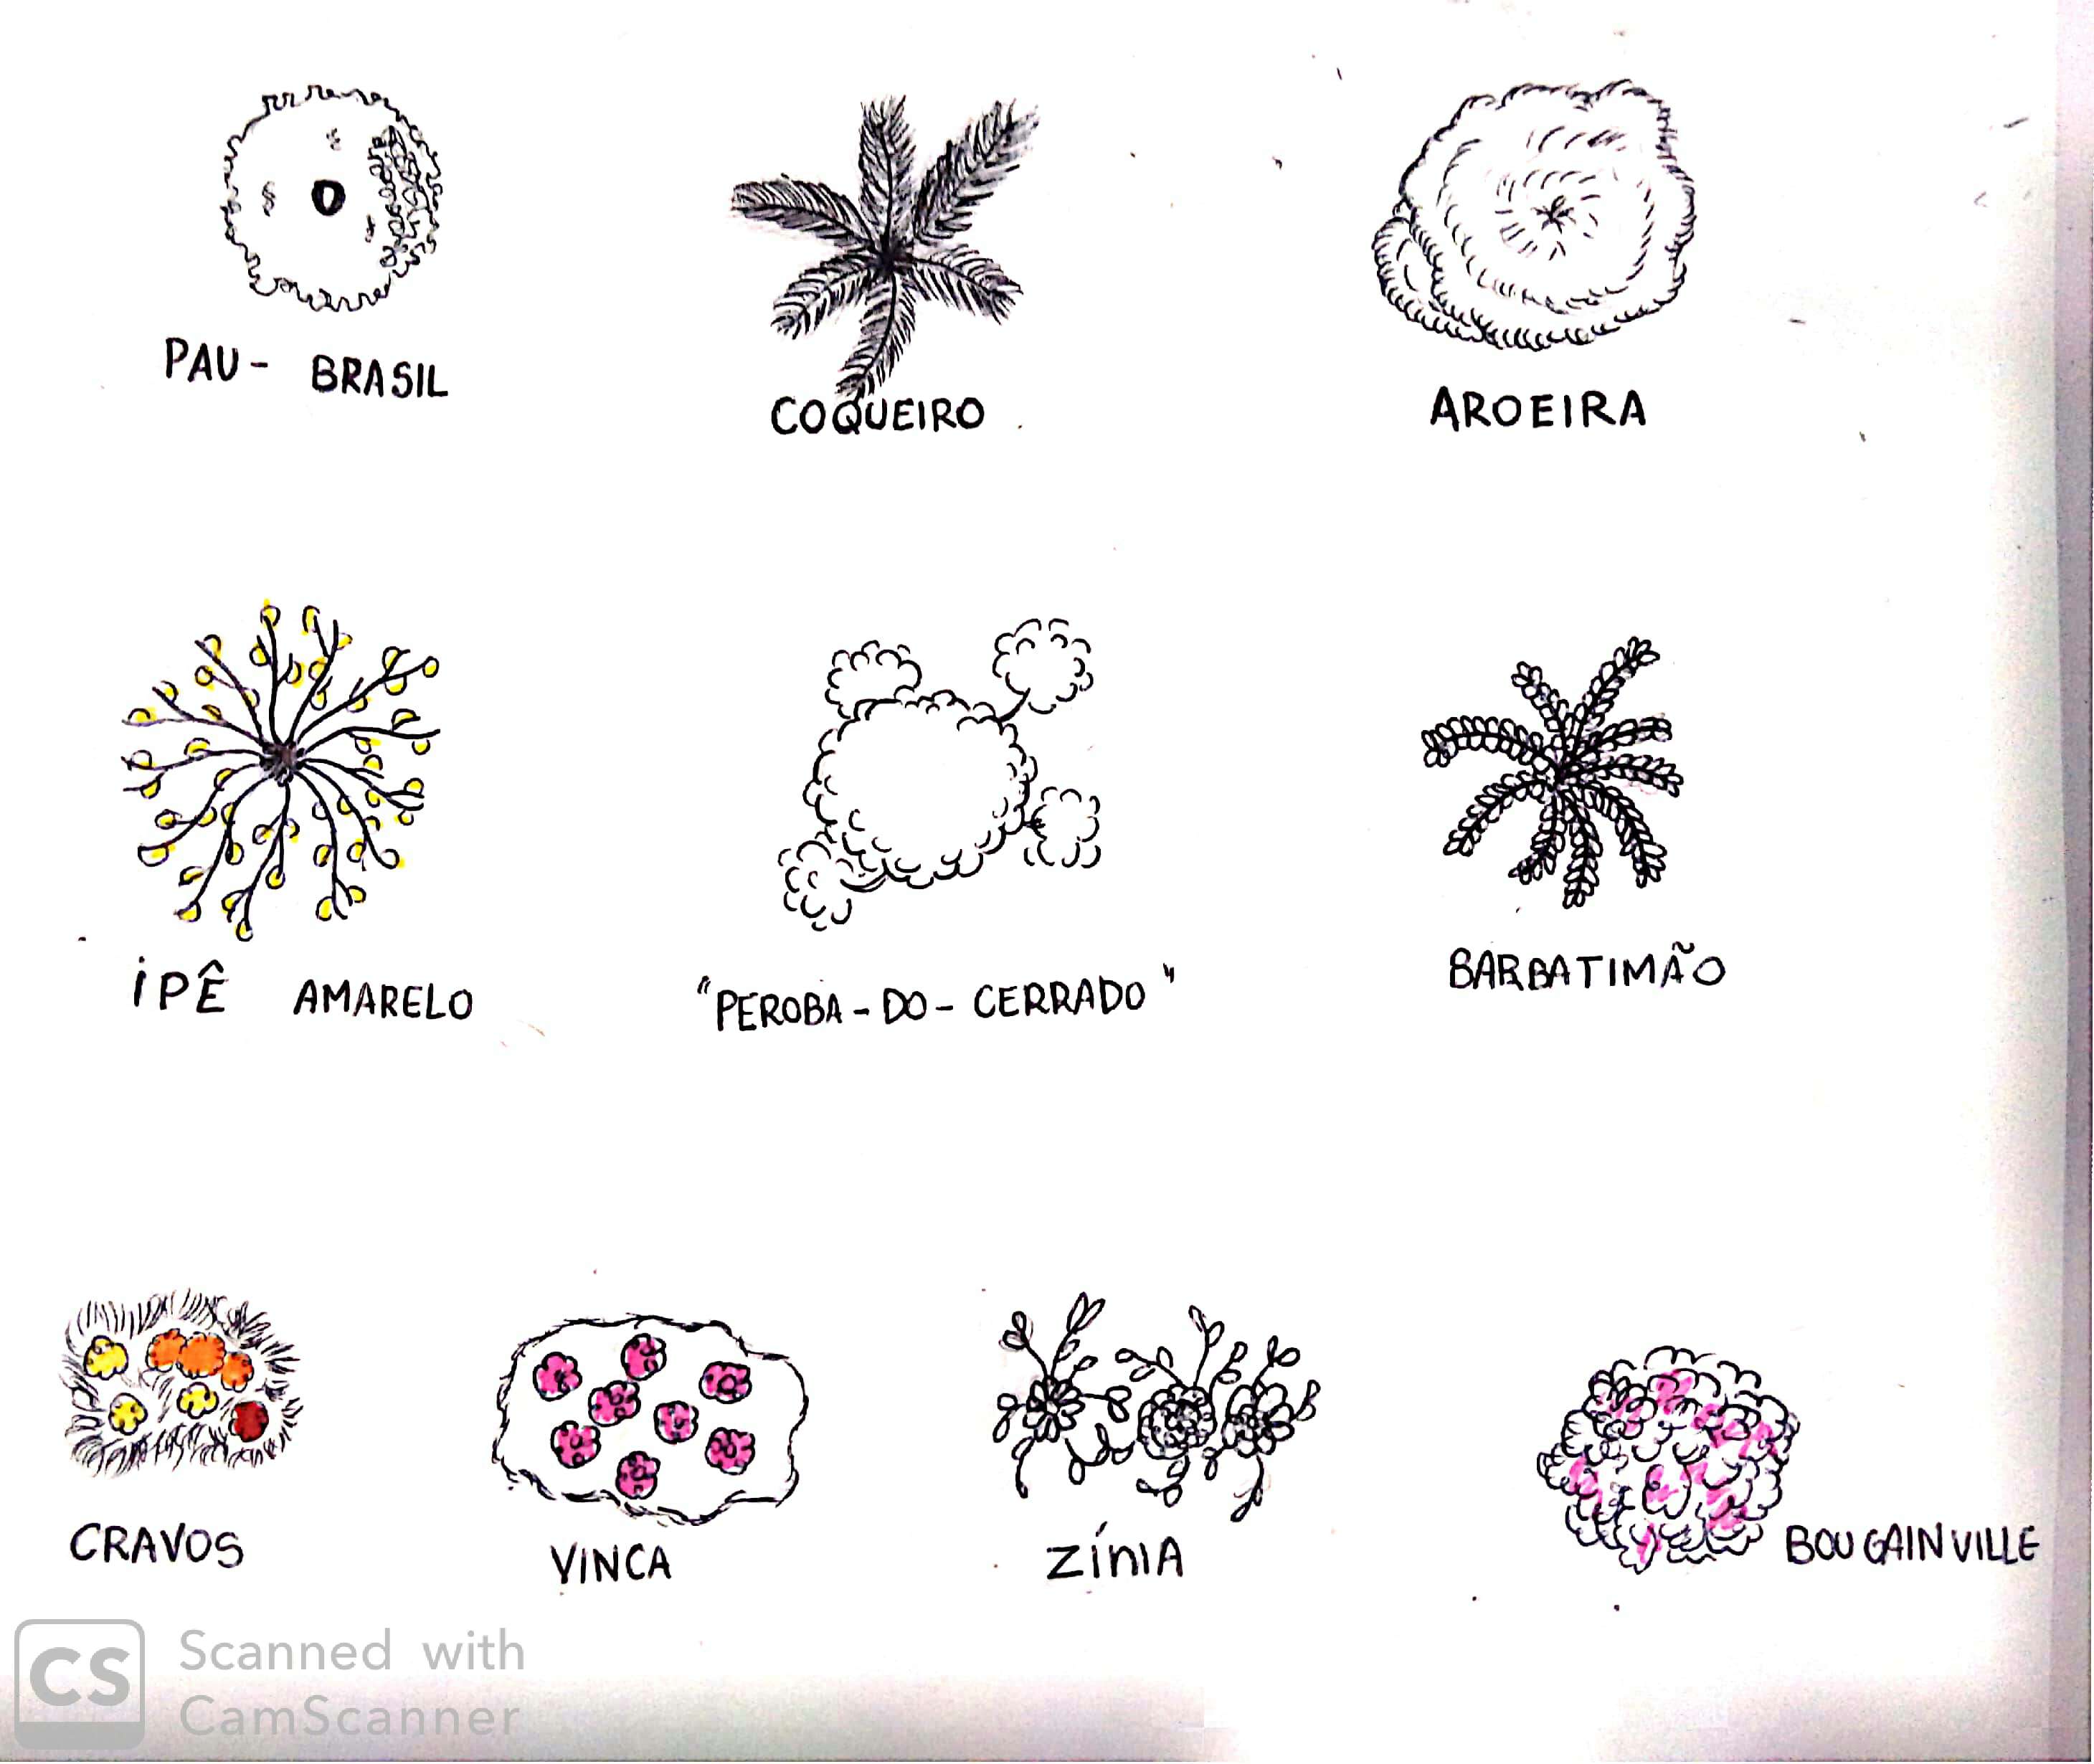 PAU - BRASIL
COQUEIRO
AROEIRA
iPÊ AMARELO
"PEROBA-DO-CERRADO"
BARBATIMÃO
CRAVOS
VINCA
ZÍnIA
BOUGAINVILLE
CS
Scanned with
CamScanner